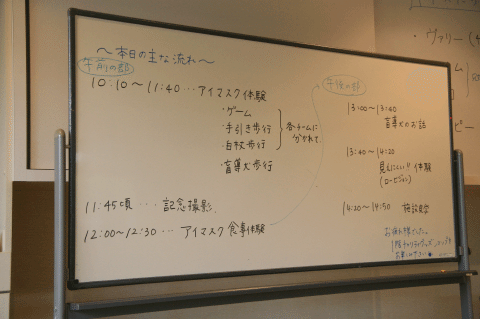 ～本日の主な流れ～
午前の部
10:10～11:40…アイマスク体験
・ゲーム
・手引き歩行
・白杖歩行
・盲導犬歩行
各チームに
分かれて
11:45頃…記念撮影
12:00～12:30…アイマスク食事体験
午後の部
13:00～13:40
盲導犬のお話
13:40～14:20
見えにくい体験
(ロービジョン)
14:20～14:50 施設見学
お疲れ様でした。
・ヴァリー